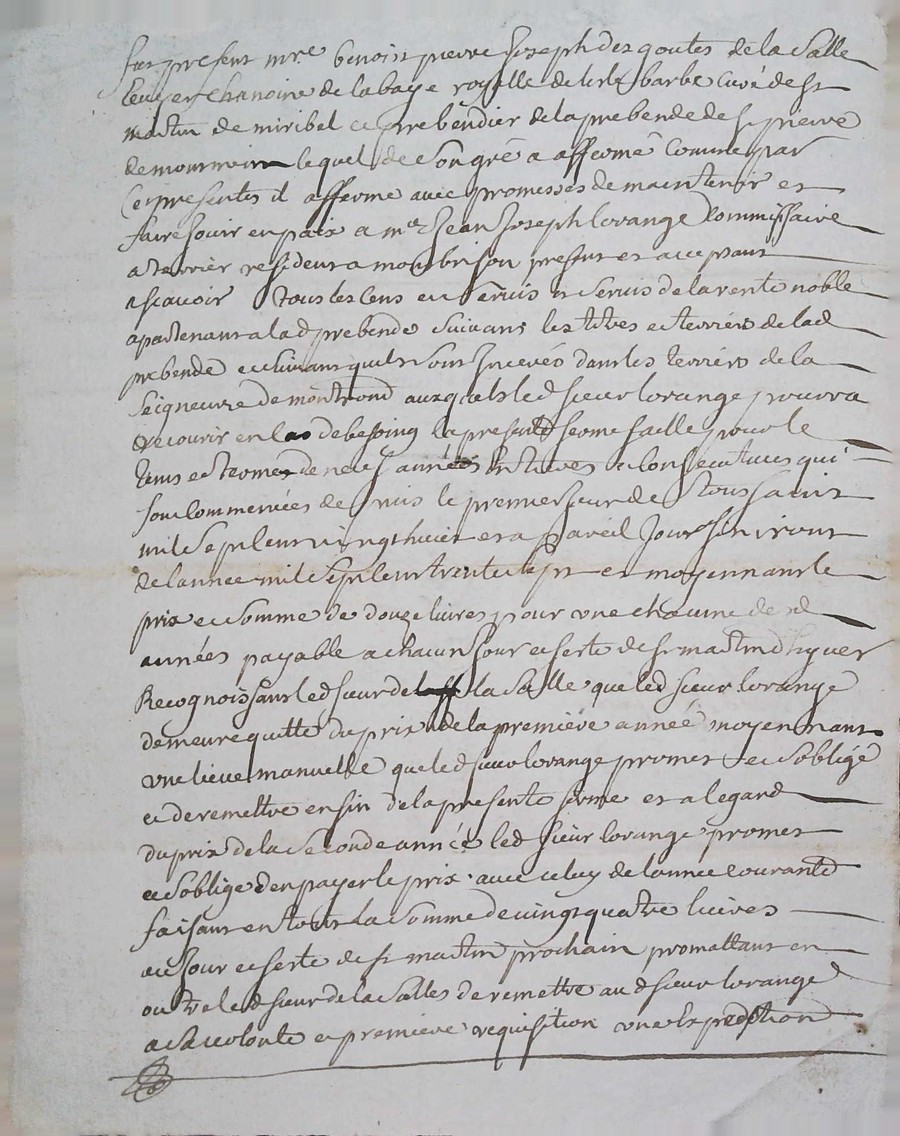 fut present mre benoist pierre Joseph des goutes de la Salle
Ecuyer Chanoine de labaye royalle de lisle barbe Curé de st
martin de miribel et prebendier de la prebende de st pierre
de lequel de son gré a affermé Comme par
Ces presentes il afferme avec promesses de maintenir et
faire Jouir en paix a me Jean Joseph lorange Commissaire
a terrier resident a montbrison present et acceptant
ascavoir tous les Cens et servis de la rente noble
apartenant a lad prebende suivant les titres et terriers de lad
prebende et suivant quils sont Inserés dans les terriers de la
Seigneurie de montrond auxquels led sieur lorange pourra
recourir en Cas de besoing la presente ferme faitte pour le
tems et terme de neuf années Entieres et Consecutives qui
sont Commencées depuis le premier Jour de toussaint
mil sept Cent vingt huict et a pareil Jour finiront
de lannee mil sept Cent trente sept et moyennant le
prix et somme de douze livres pour une chacune desd
années payable a chacun Jour et feste de st martin dhyver
Recognoissant led sieur de la Salle que led sieur lorange
demeure quitte du prix de la premiere année moyennant
une lieve manuelle que led sieur lorange promet et soblige
de remettre en fin de la presente ferme et a legard
du prix de la seconde année led sieur lorange promet
et soblige den payer le prix avec celuy de lannee courante
faisant en tout la somme de vingt quatre livres
au Jour et feste de st martin prochain promettant en
outre led sieur de la Salle de remettre aud sieur lorange
a sa volonte et premiere requisition une Expedition